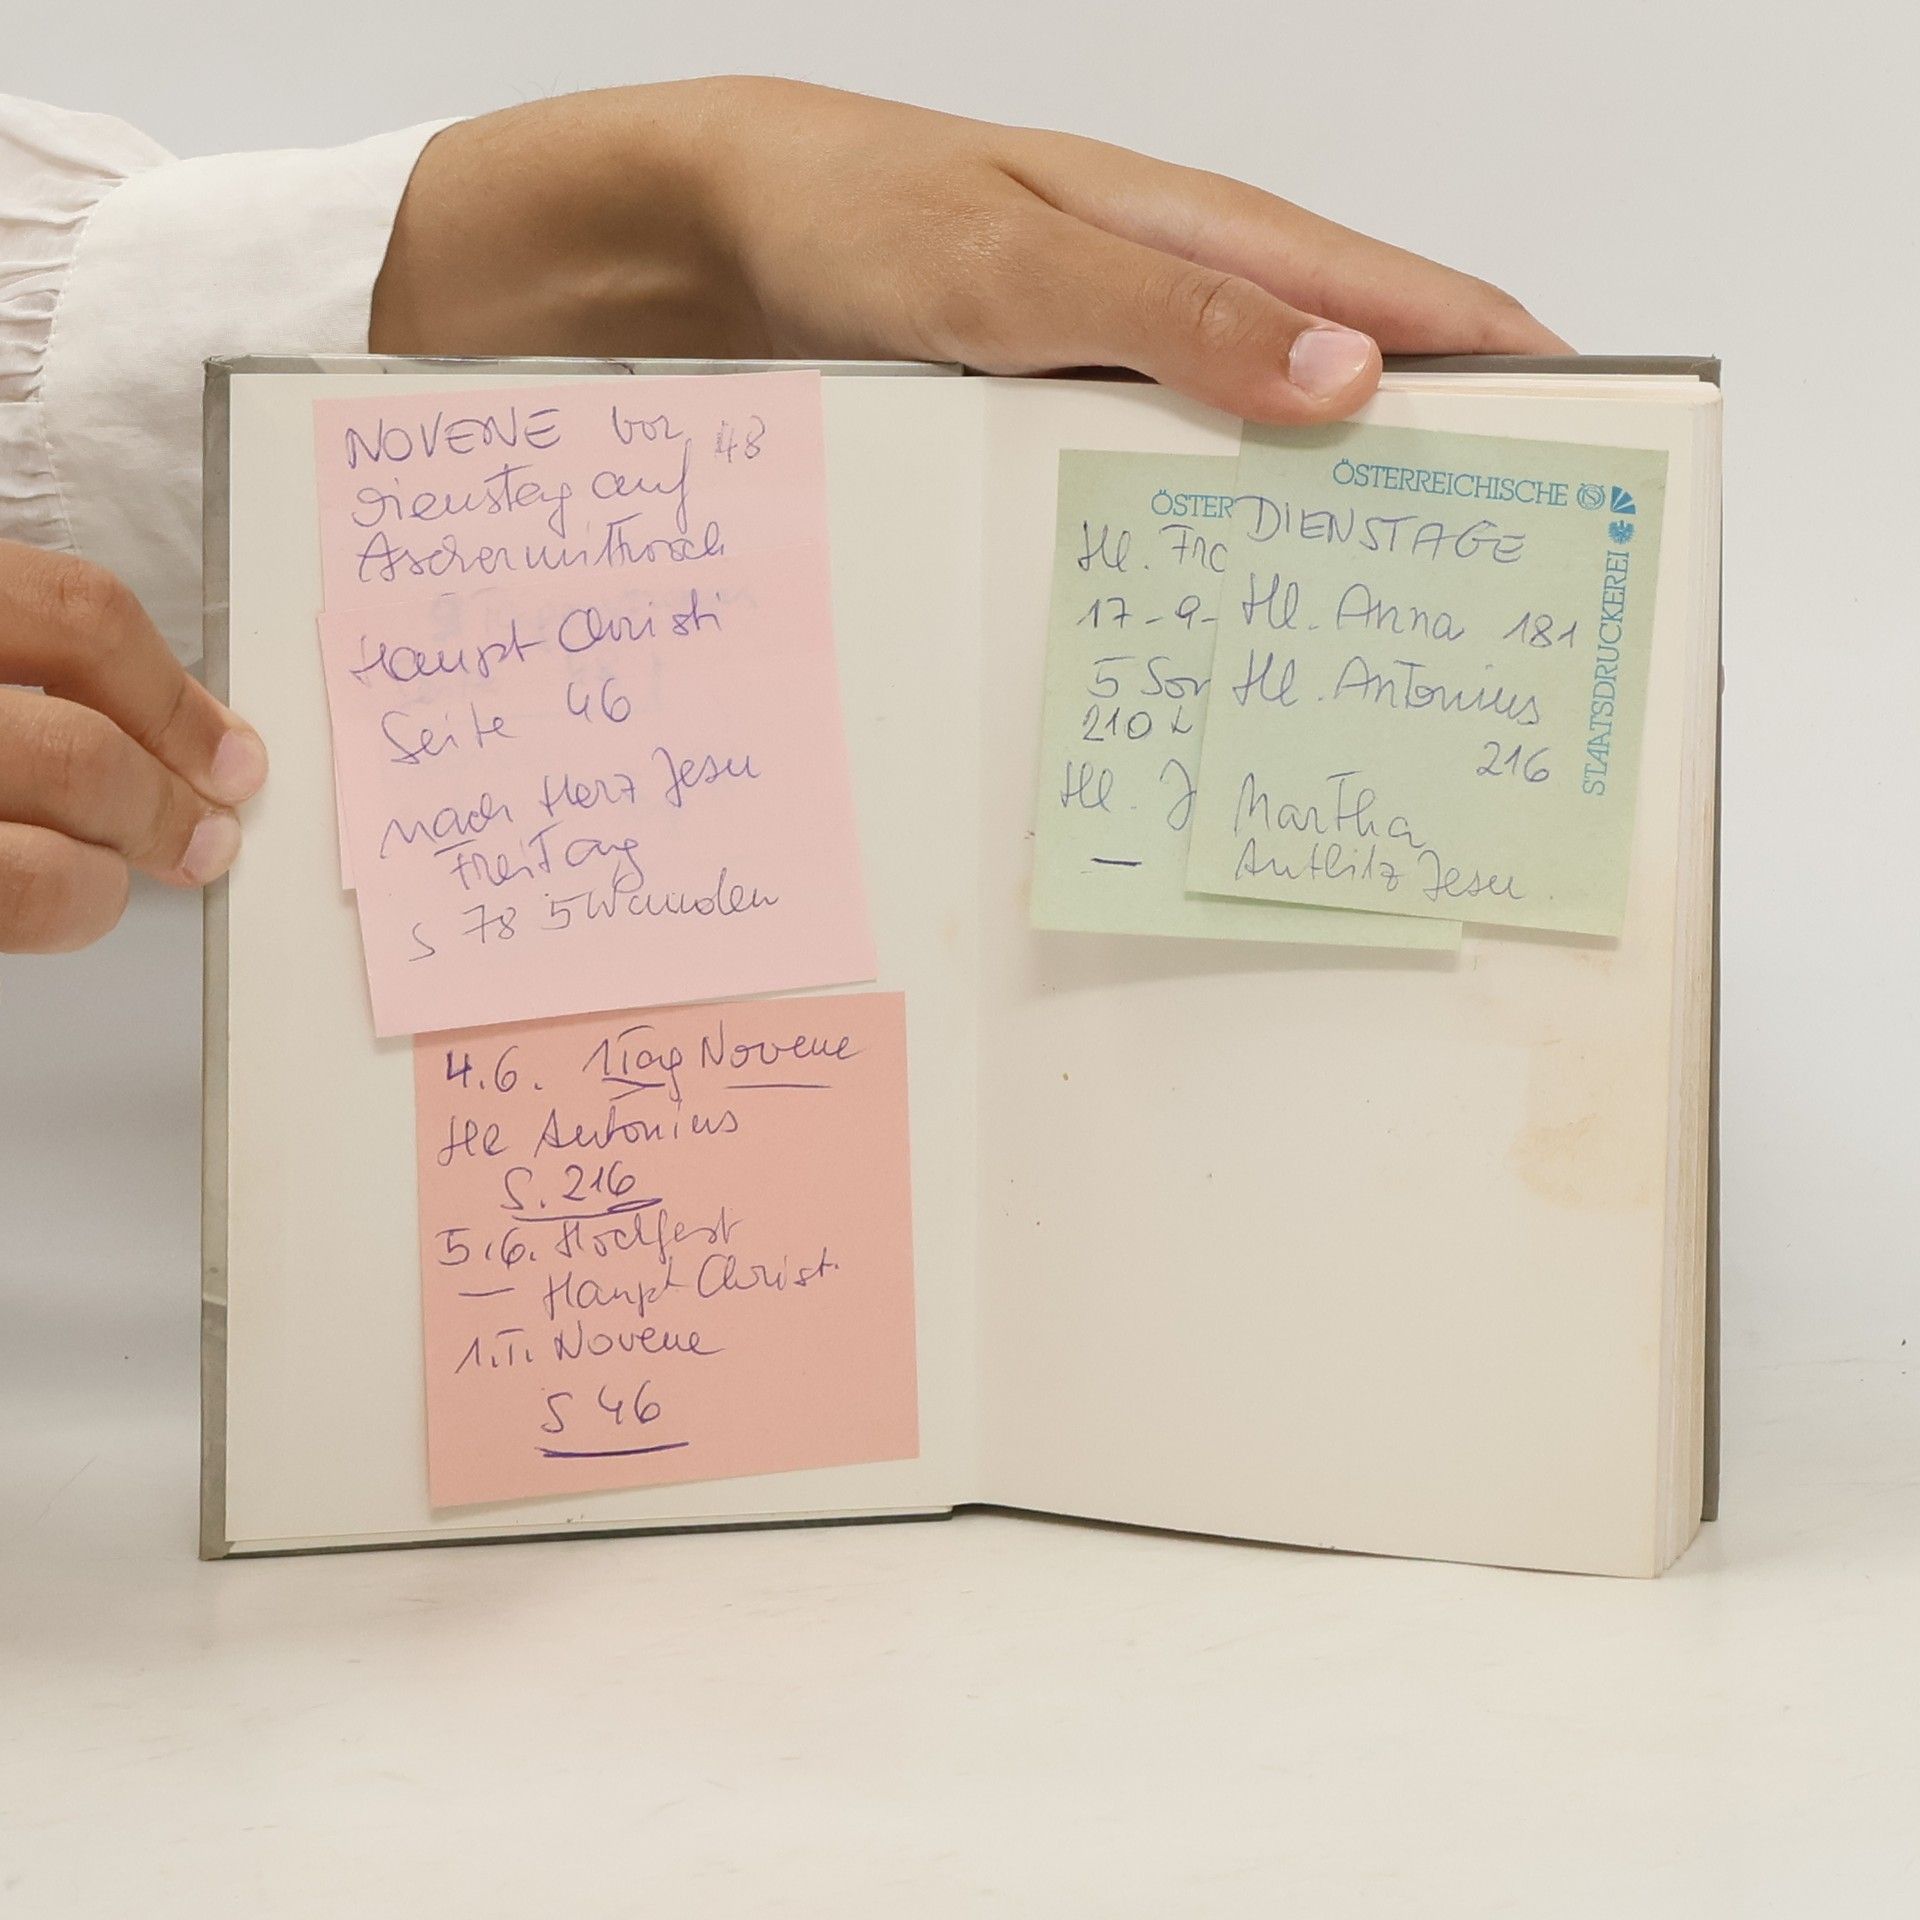 NOVENE vor 48
Dienstag auf
Aschermittwoch
Haupt Christi
Seite 46
nach Herz Jesu
Freitag
S 78 5 Wunden
4.6. 1 Tag Novene
Hl Antonius
S. 216
5.6. Hochfest
— Haupt Christi
1.T. Novene
S 46
ÖSTER
Hl. Fra
17-9-
5 Son
210
Hl. J
—
ÖSTERREICHISCHE
STAATSDRUCKEREI
DIENSTAGE
Hl. Anna 181
Hl. Antonius
216
Martha
Antlitz Jesu.